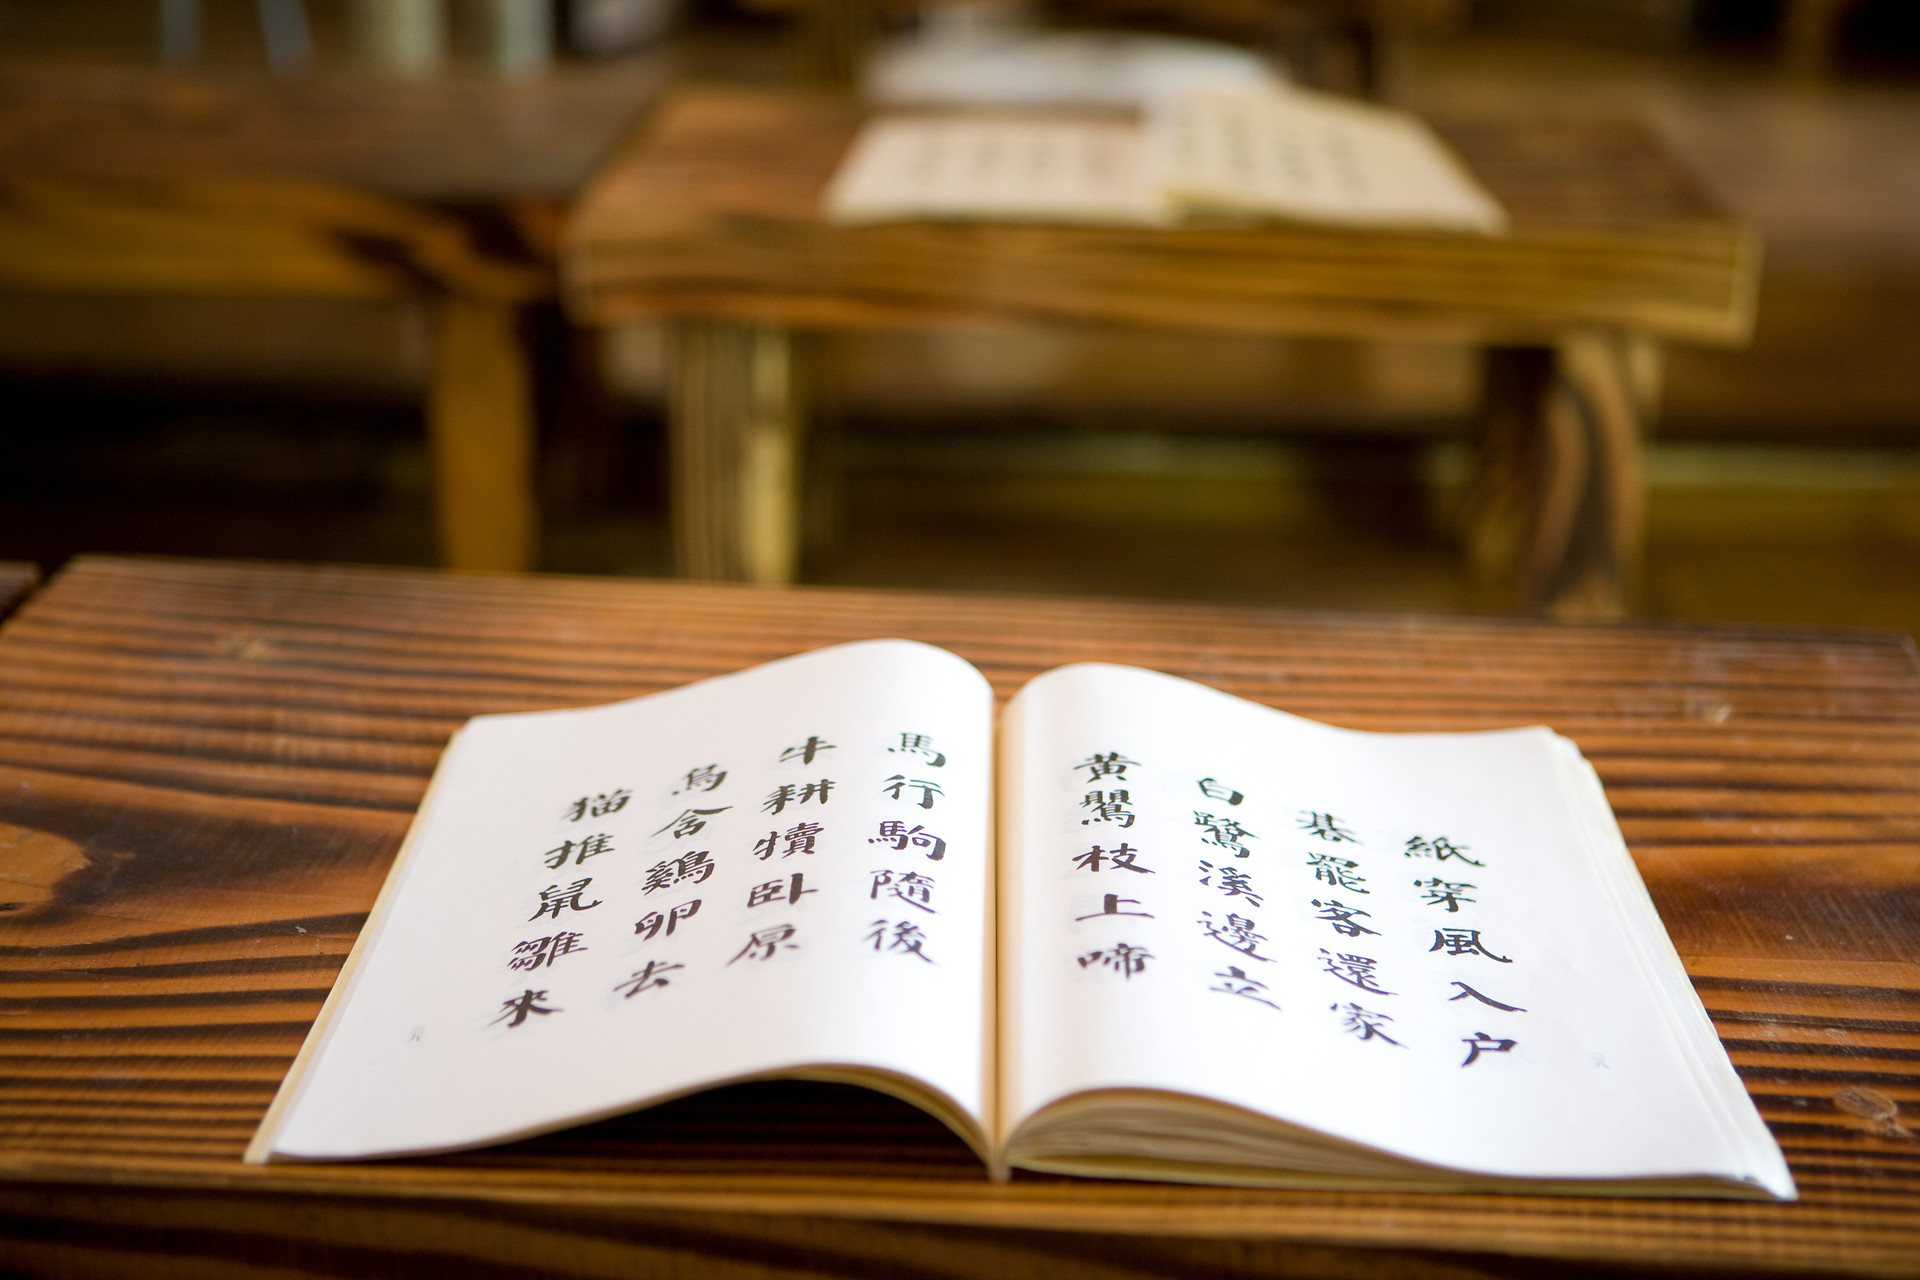 紙穿風入户
碁罷客還家
白鷺溪邊立
黄鸎枝上啼
馬行駒隨後
牛耕犢卧原
烏舍鷄卵去
猫推鼠雛來